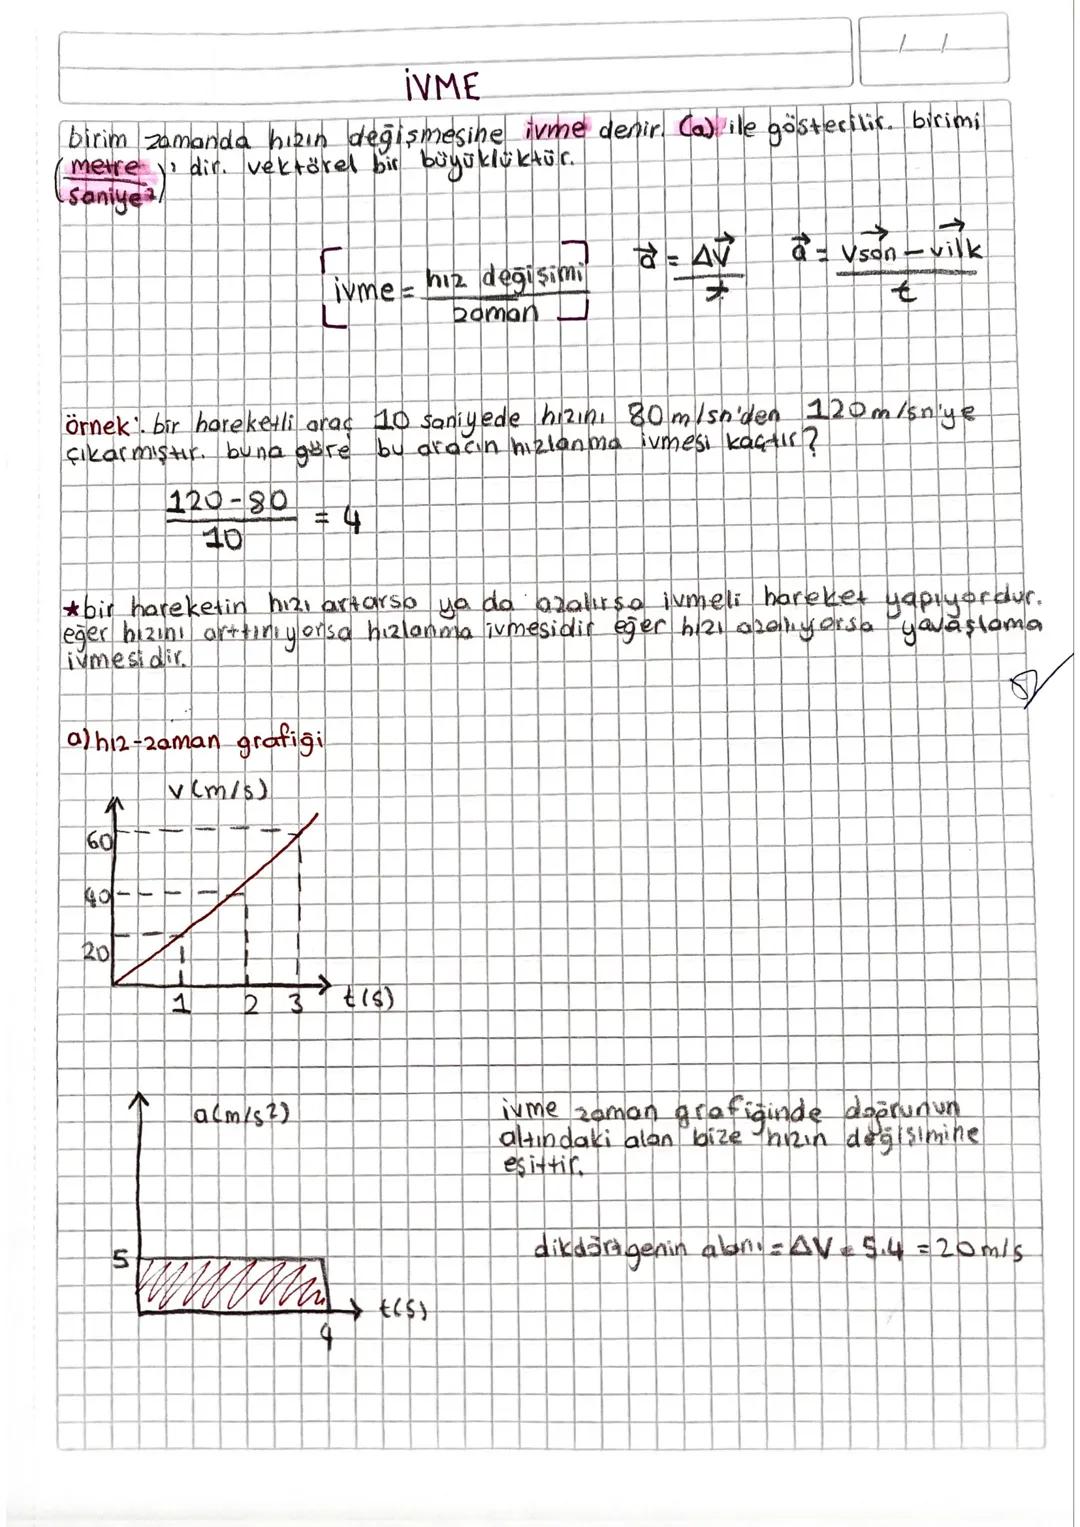 / /
İVME
birim zamanda hızın değişmesine ivme denir. (a) ile gösterilir. birimi
(metre/saniye²)' dir. vektörel bir büyüklüktür.
[ivme = hız değişimi/zaman] a⃗ = ΔV⃗/t a⃗ = v⃗son - v⃗ilk/t
örnek: bir hareketli araç 10 saniyede hızını 80 m/sn'den 120 m/sn'ye
çıkarmıştır. buna göre bu aracın hızlanma ivmesi kaçtır?
120-80/10 = 4
*bir hareketin hızı artarsa ya da azalırsa ivmeli hareket yapıyordur.
eğer hızını arttırıyorsa hızlanma ivmesidir eğer hızı azalıyorsa yavaşlama
ivmesidir.
a) hız-zaman grafiği
v (m/s)
60
40
20
1 2 3 t(s)
a(m/s²)
ivme zaman grafiğinde doğrunun
altındaki alan bize hızın değişimine
eşittir.
dikdörtgenin alanı = ΔV = 5.4 = 20 m/s
5
t(s)
4